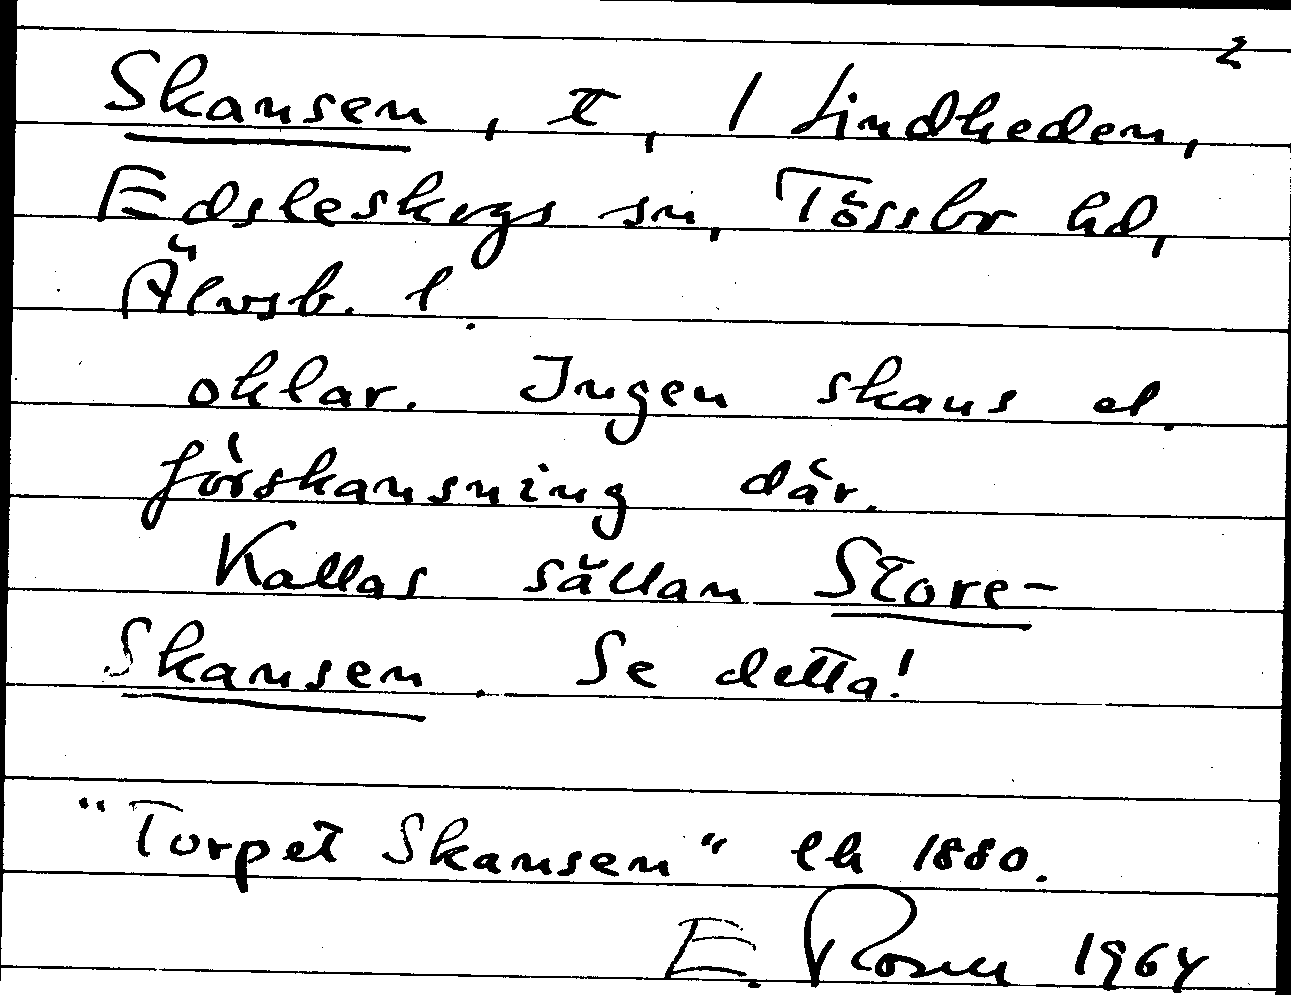 2
Skansen, t, 1 Lindheden,
Edsleskogs sn, Tössbo hd,
Älvsb. l.
oklar. Ingen skans el.
förskansning där.
Kallas sällan Store-
Skansen. Se detta!
"Torpet Skansen" lh 1880.
E. Rosen 1964